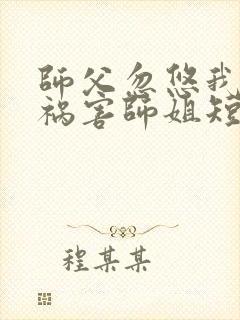 師父忽悠我
禍害師姐短
程某某